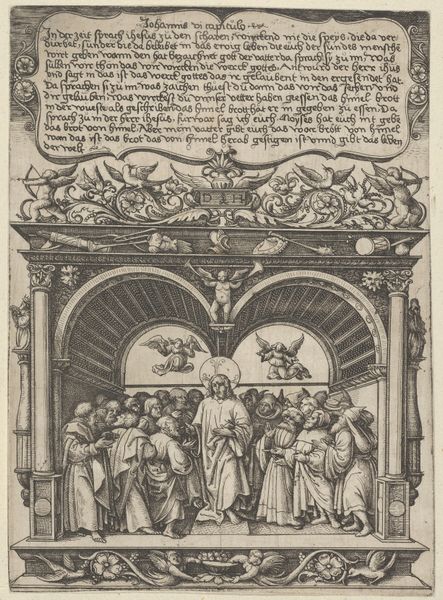 Johannis vi capitulo
In der zeit sprach ihesus zu den scharen, wirckend nit die speys die da ver
dirbet, sunder die da beleibet in das ewig leben die euch der sun des mensche
wirt geben wann den hat bezaichnet got der vatter da sprache si zu im was
sullen wir thon das wir wircken die werck gottes Antwurt der herr ihus
vnd sagt in das ist das werck gottes das ir gelaubent in den er gesendet hat
Da sprachen si zu im was zaichen thust du dann das wir das sehen vnd
dir gelauben was wirckest du vnnser vetter haben gessen das himel brott
in der wueste als geschriben das himel brott hat er in gegeben zu essen Da
sprach zu in der herr ihesus, furwar sag ich euch Moyses hat euch nit gebe
das brot von himel Aber mein vatter gibt euch das war brott von himel
wann das ist das brot das von himel herab gestigen ist vnnd gibt das leben
der welt
D H